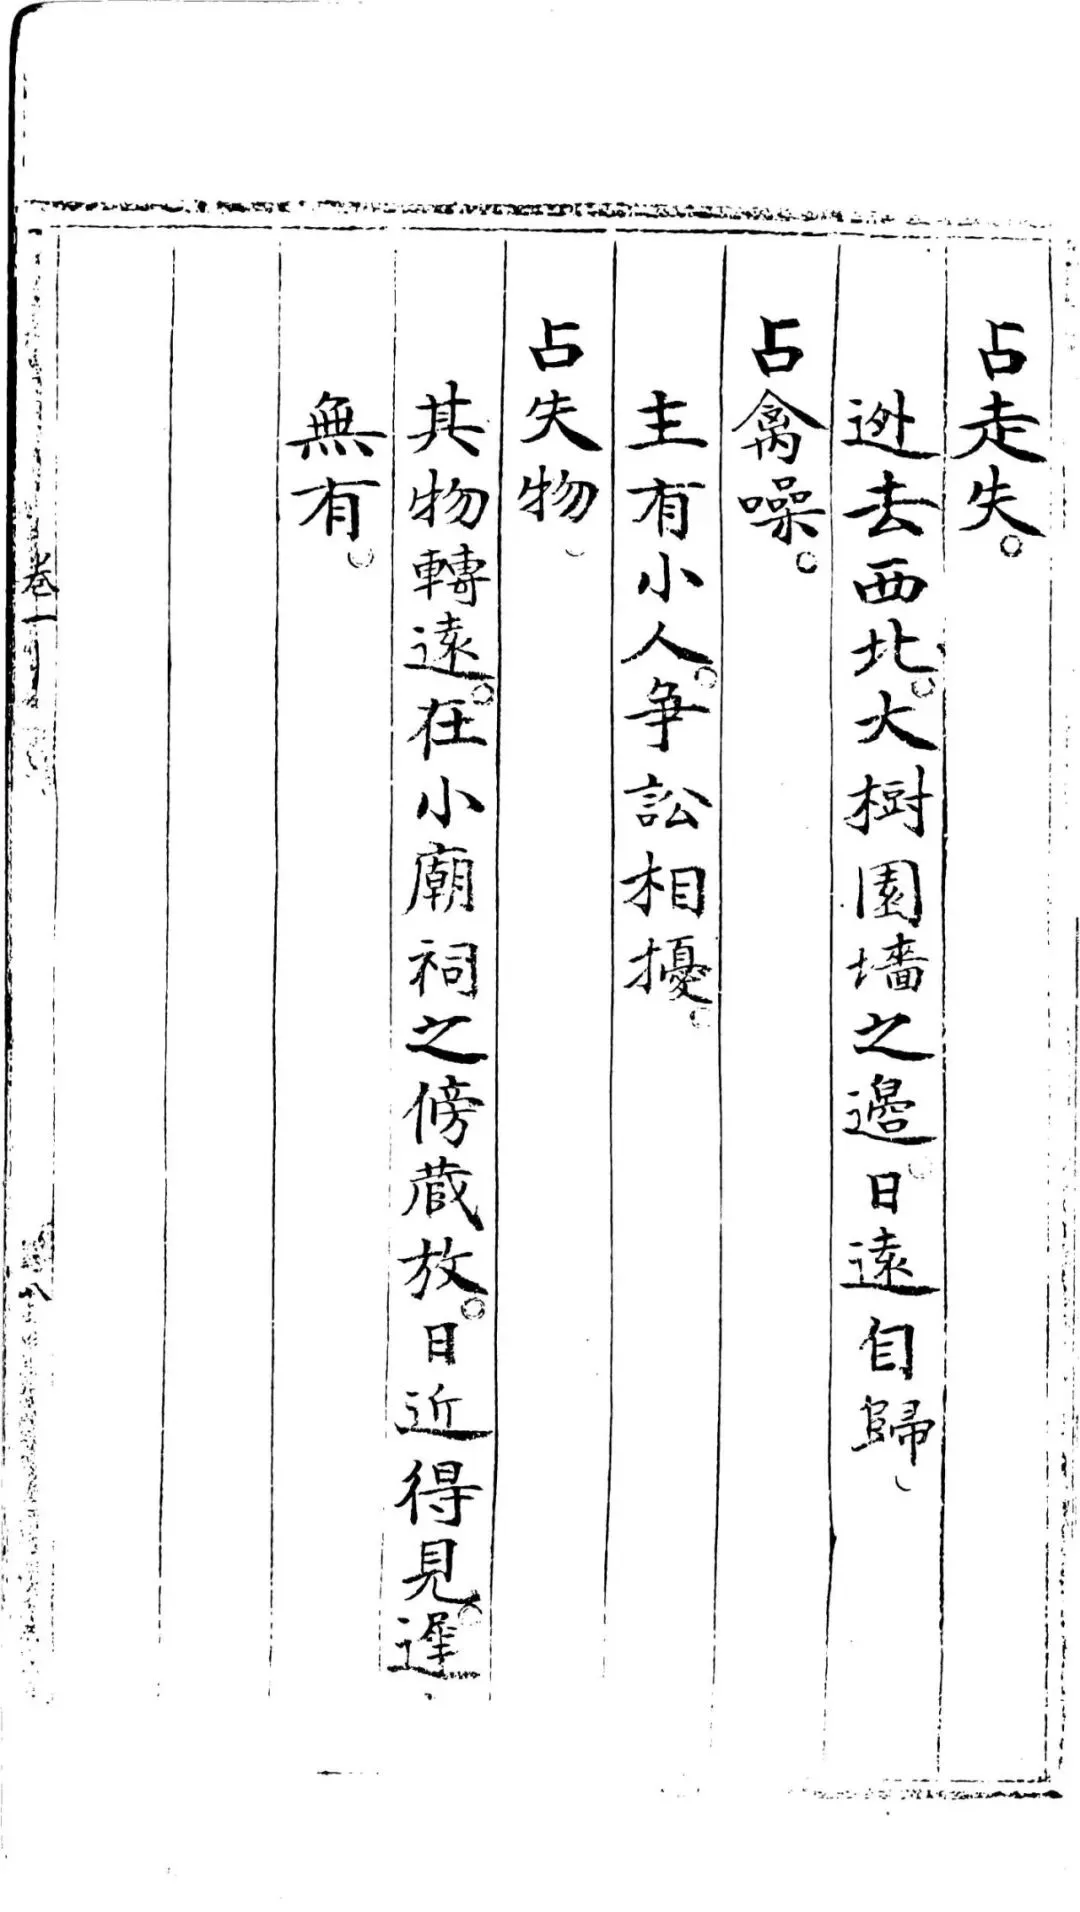 占走失。
迯去西北。大樹園墻之邉。日遠自歸
占禽噪。
主有小人。争訟相擾。
占失物
其物轉遠。在小廟祠之傍蔵放。日近得見。遲
無有。
卷一
八